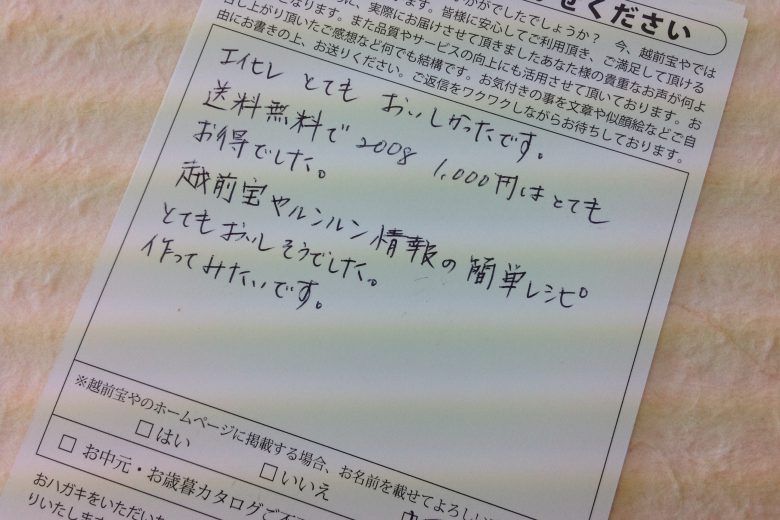 せください
がでしたでしょうか？ 今、越前宝やでは
ます。皆様に安心してご利用頂き、ご満足して頂ける
に、実際にお届けさせて頂きましたあなた様の貴重なお声が何よ
となります。また品質やサービスの向上にも活用させて頂いております。お
召し上がり頂いたご感想など何でも結構です。お気付きの事を文章や似顔絵などご自
由にお書きの上、お送りください。ご返信をワクワクしながらお待ちしております。
エイヒレ とても おいしかったです。
送料無料で 200g 1,000円はとても
お得でした。
越前宝やルンルン情報の簡単レシピ
とてもおいしそうでした。
作ってみたいです。
※越前宝やのホームページに掲載する場合、お名前を載せてよろしい
□ はい □ いいえ
□ お中元・お歳暮カタログご
おハガキをいただいた
りいたします